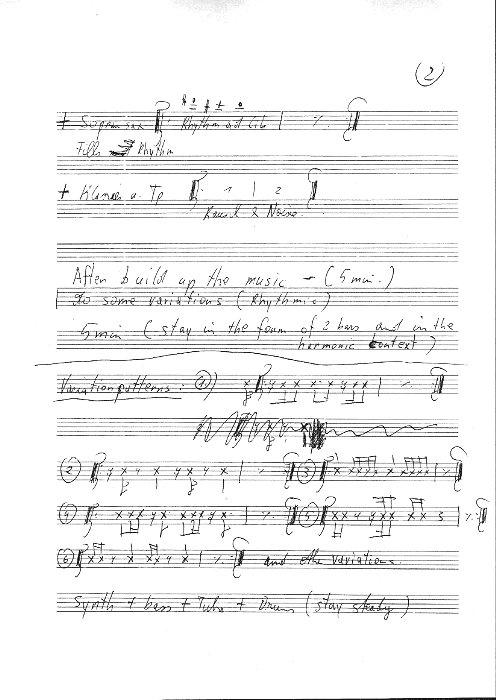 (2)
+ Sopran sax Rhythm ad lib ٪
Fills Rhythm
+ u. Tp 1 | 2
& Noise
After build up the music - (5 min.)
do some variations (Rhythmic)
5 min (stay in the form of 2 bars and in the
harmonic context)
Variationpatterns: 1)
2 3
4 5
6 and other variations.
Synth + bass + Tuba + Drums (stay steady)